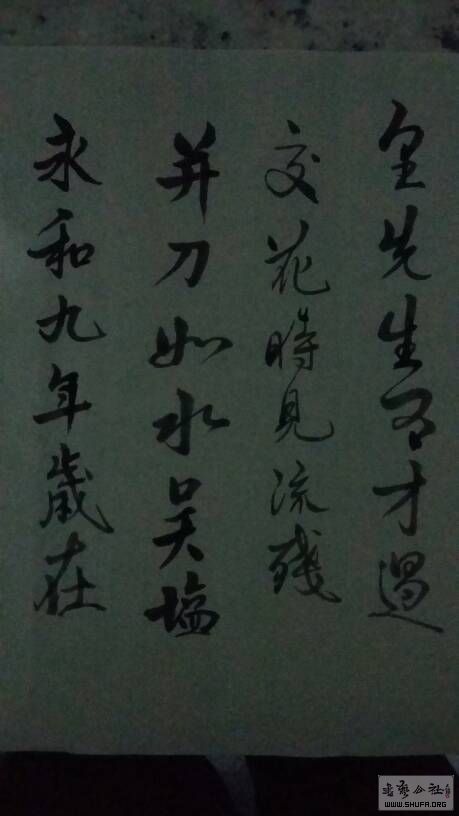 皇先生有才過
交花時見流殘
并刀如水吴塩
永和九年歲在
書藝公社
WWW.SHUFA.ORG